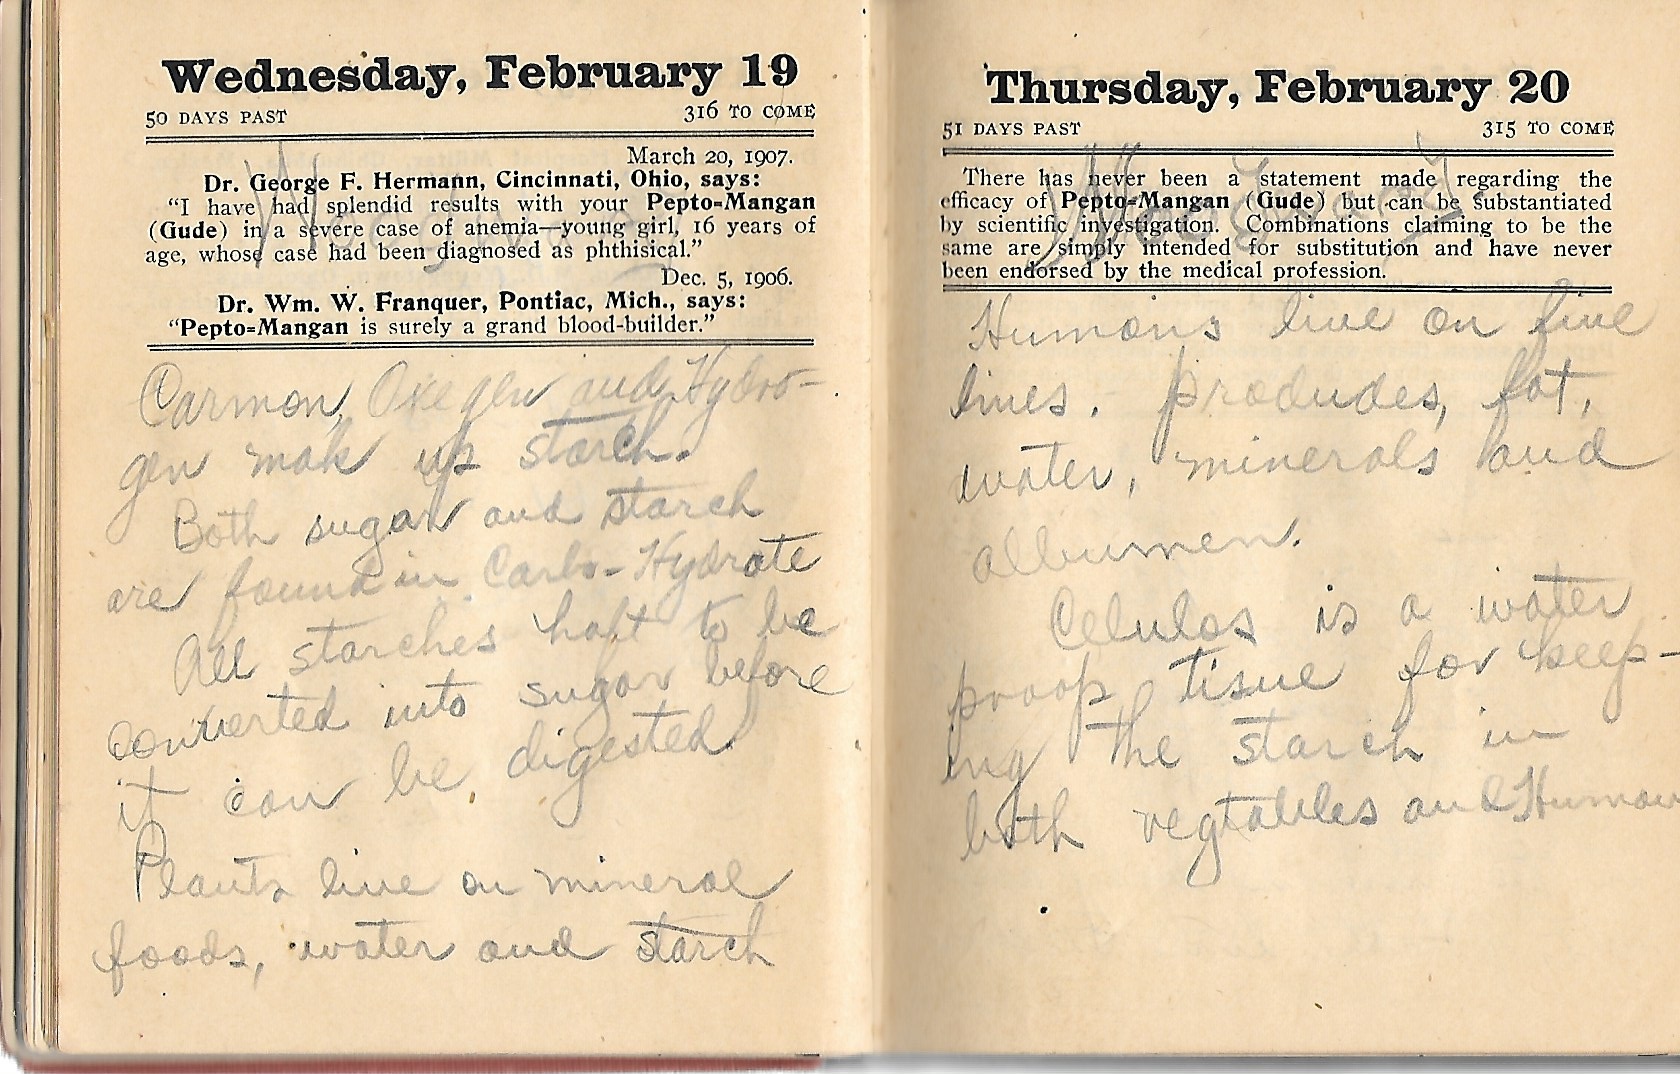 Wednesday, February 19
50 DAYS PAST 316 TO COME
March 20, 1907.
Dr. George F. Hermann, Cincinnati, Ohio, says:
"I have had splendid results with your Pepto=Mangan
(Gude) in a severe case of anemia—young girl, 16 years of
age, whose case had been diagnosed as phthisical."
Dec. 5, 1906.
Dr. Wm. W. Franquer, Pontiac, Mich., says:
"Pepto=Mangan is surely a grand blood-builder."
Carmon, Oxegen and Hydro-
gen mak up starch.
Both sugar and starch
are found in Carbo-Hydrate
All starches haft to be
converted into sugar before
it can be digested.
Plants live on mineral
foods, water and starch
Thursday, February 20
51 DAYS PAST 315 TO COME
There has never been a statement made regarding the
efficacy of Pepto=Mangan (Gude) but can be substantiated
by scientific investigation. Combinations claiming to be the
same are simply intended for substitution and have never
been endorsed by the medical profession.
Humans live on five
lines. produdes, fat,
water, minerals and
albumen.
Celulos is a water
proop tissue for keep-
ing the starch in
both vegtables and Human